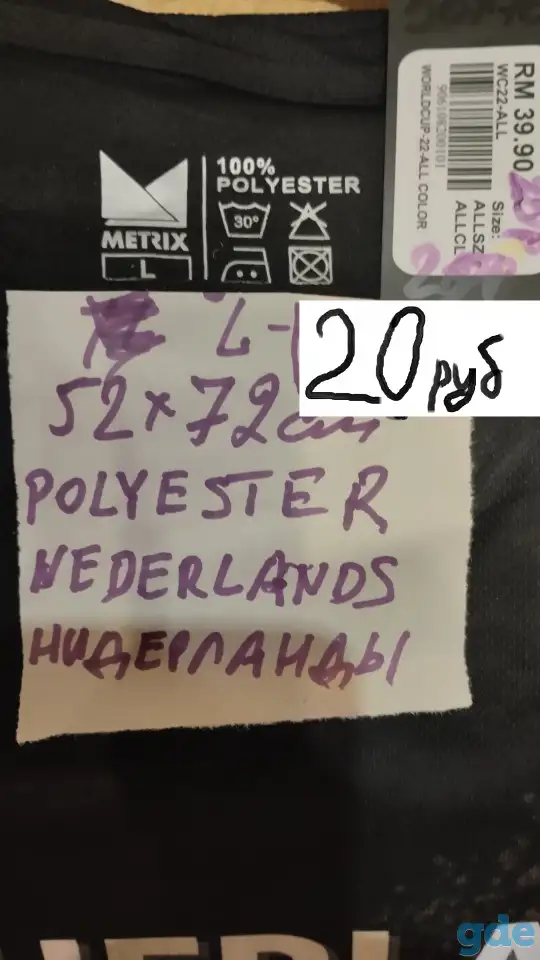 RM 39.90
WC22-ALL
906108200101
WORLDCUP-22-ALL COLOR
Size:
ALLSZ
ALLCL
METRIX
L
100%
POLYESTER
30°
L-
20 руб
52x72см
POLYESTER
NEDERLANDS
НИДЕРЛАНДЫ
gde